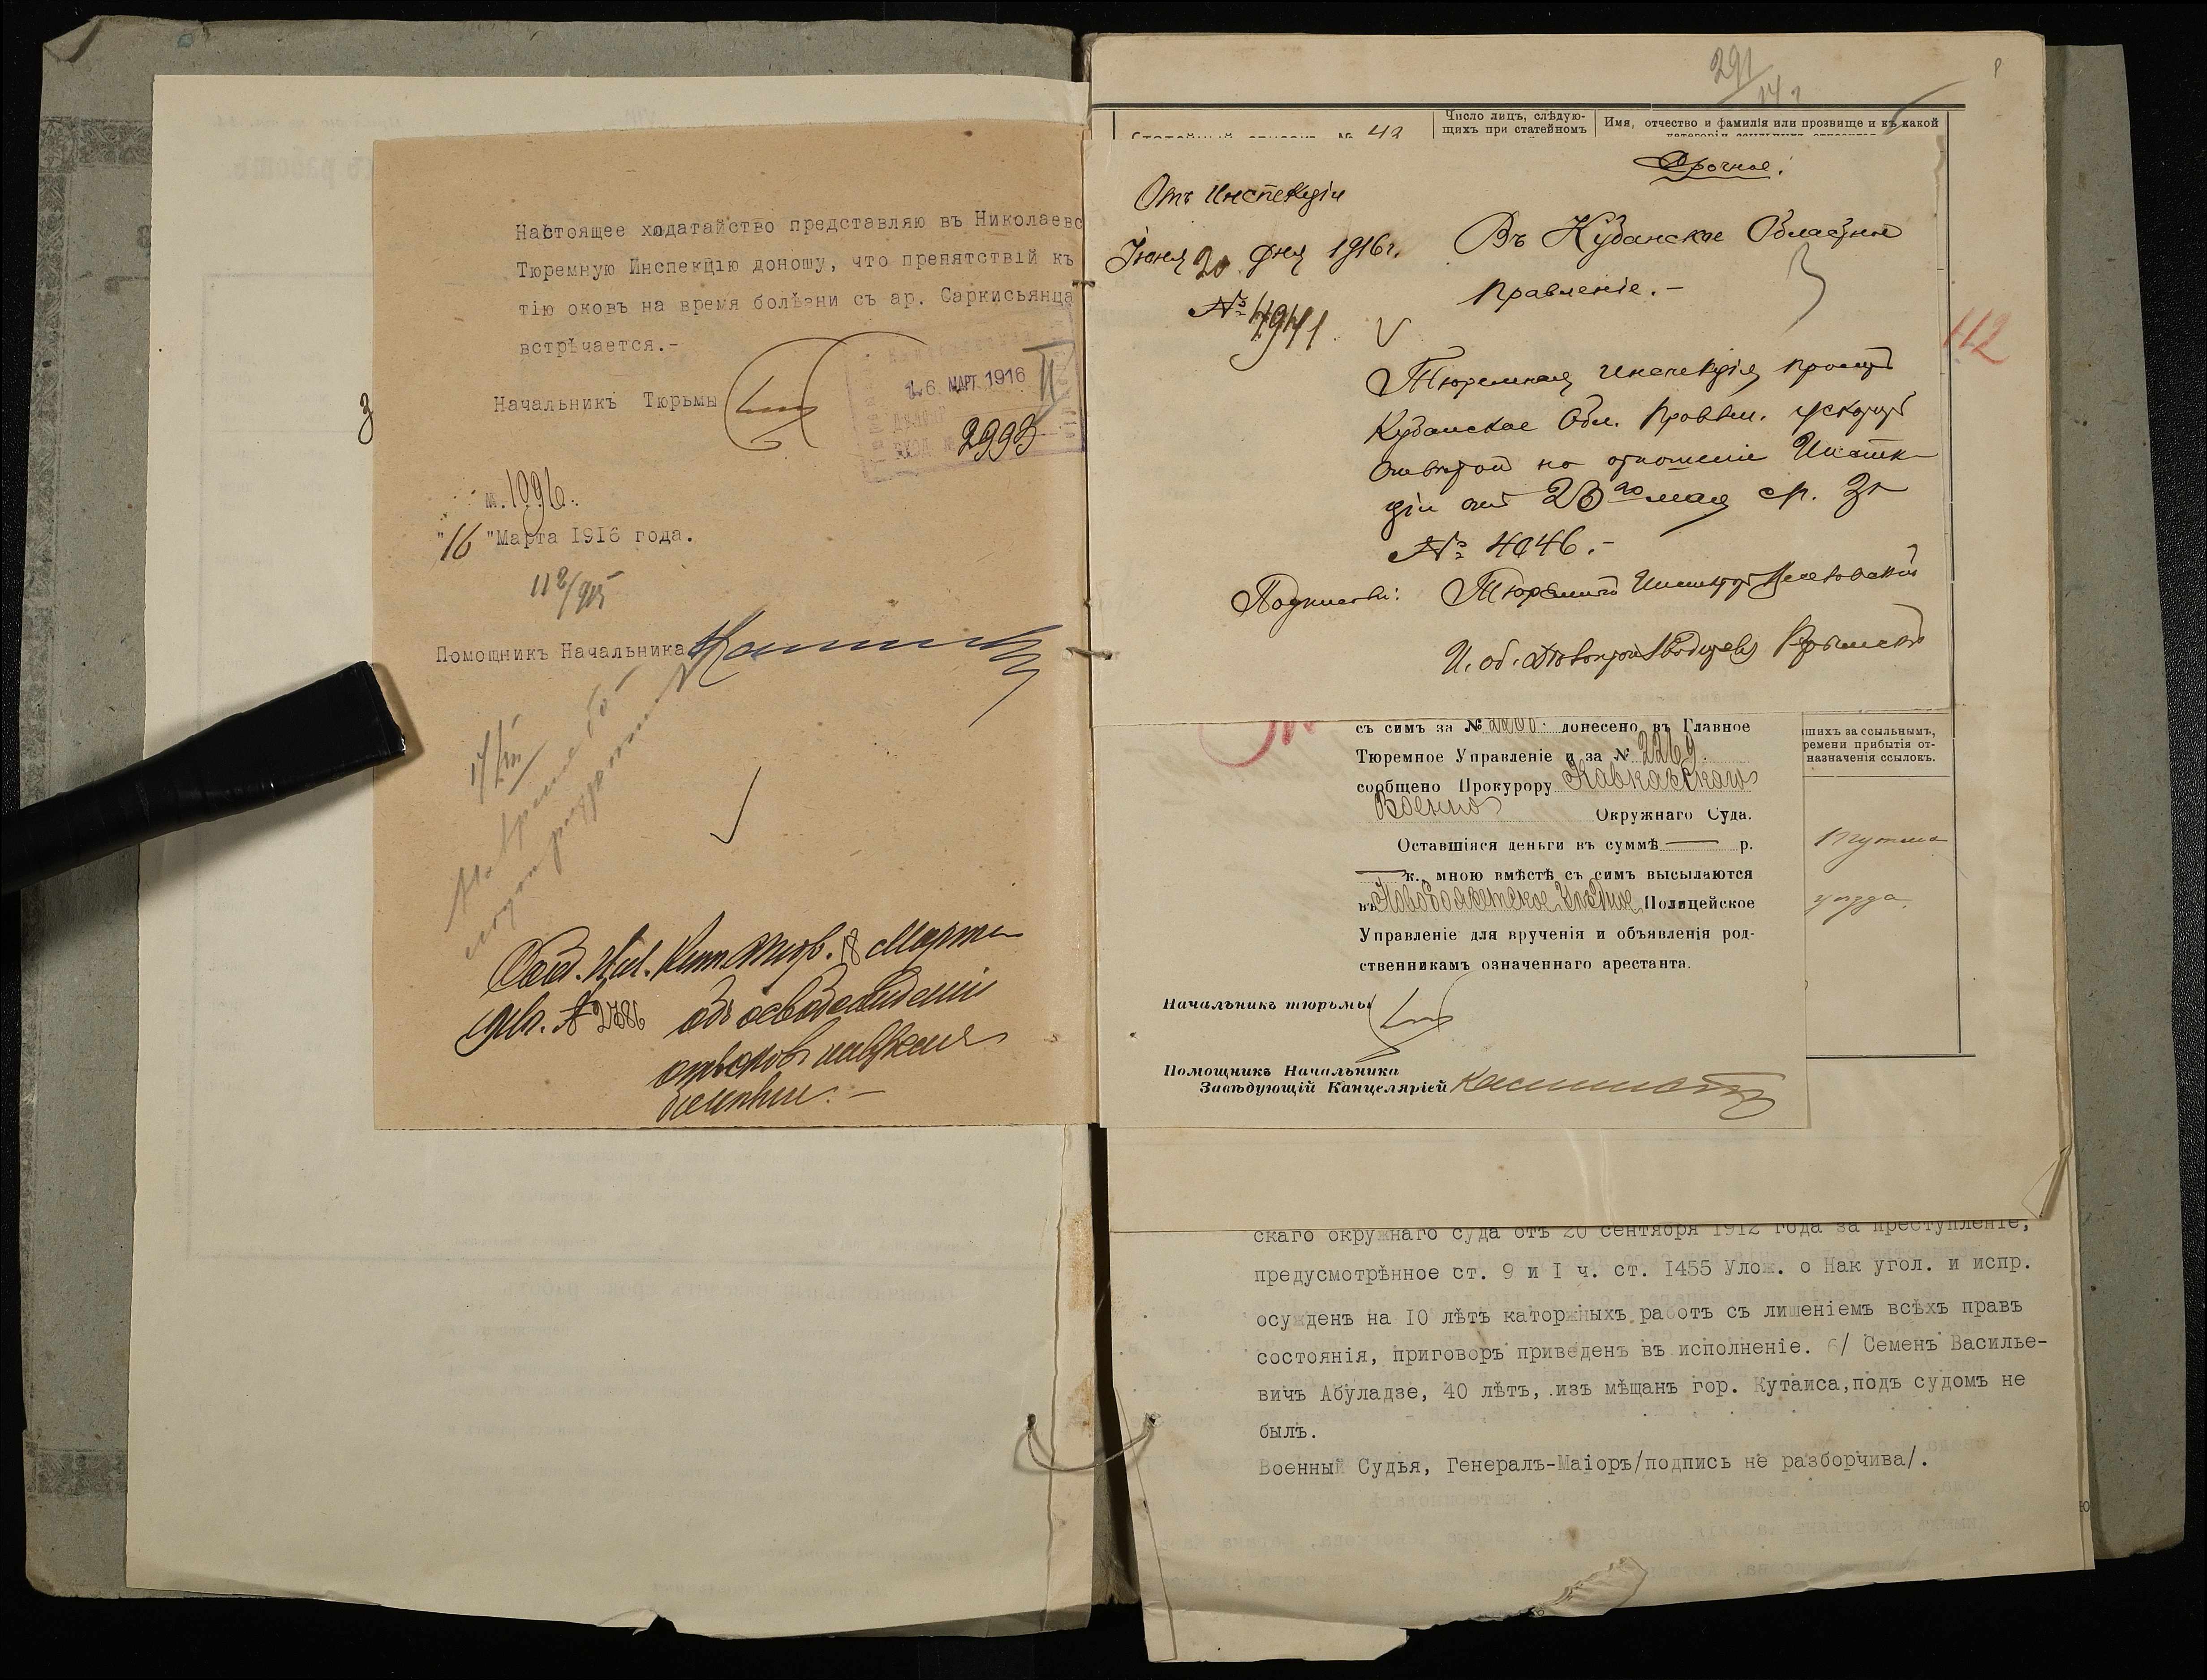 Настоящее ходатайство представляю въ Николаевс
Тюремную Инспекцію доношу, что препятствій къ
тію оковъ на время болѣзни съ ар. Саркисьянца
встрѣчается.-
Начальникъ Тюрьмы
16 МАРТ 1916
2993
м. 1096.
"16 "Марта 1916 года.
112/915
Помощникъ Начальника
17/III
18 Марта
№ 2786 объ освобожденіи
отъ оковъ на время
болѣзни. —
291
Статейный списокъ № 42
Число лицъ, слѣдую-
щихъ при статейномъ
Имя, отчество и фамилія или прозвище и къ какой
категоріи ссыльныхъ относится
Срочное.
Отъ Инспекціи
Іюня 20 дня 1916 г.
№ 4941
Въ Кубанское Областное
Правленіе.-
112
Тюремная Инспекція проситъ
Кубанское Обл. Правлен. ускорить
отвѣтомъ на отношеніе Инспек-
ціи отъ 23го мая с.г. за
№ 4046.-
Подписали: Тюремный Инспекторъ
И. об. Дѣлопроизводителя
съ симъ за № донесено въ Главное
Тюремное Управленіе и за № 2269
сообщено Прокурору Кавказскаго
Военно
Окружнаго Суда.
Оставшіяся деньги въ суммѣ — р.
— к. мною вмѣстѣ съ симъ высылаются
въ Новобаязетское Уѣздное Полицейское
Управленіе для врученія и объявленія род-
ственникамъ означеннаго арестанта.
Начальникъ тюрьмы
Помощникъ Начальника
Завѣдующій Канцеляріей
шихъ за ссыльнымъ,
ремени прибытія от-
назначенія ссылокъ.
уѣзда.
скаго окружнаго суда отъ 20 сентября 1912 года за преступленіе,
предусмотрѣнное ст. 9 и I ч. ст. I455 Улож. о Нак угол. и испр.
осужденъ на IO лѣтъ каторжныхъ работъ съ лишеніемъ всѣхъ правъ
состоянія, приговоръ приведенъ въ исполненіе. 6/ Семенъ Василье-
вичъ Абуладзе, 40 лѣтъ, изъ мѣщанъ гор. Кутаиса,подъ судомъ не
былъ.
Военный Судья, Генералъ-Маіоръ/подпись не разборчива/.